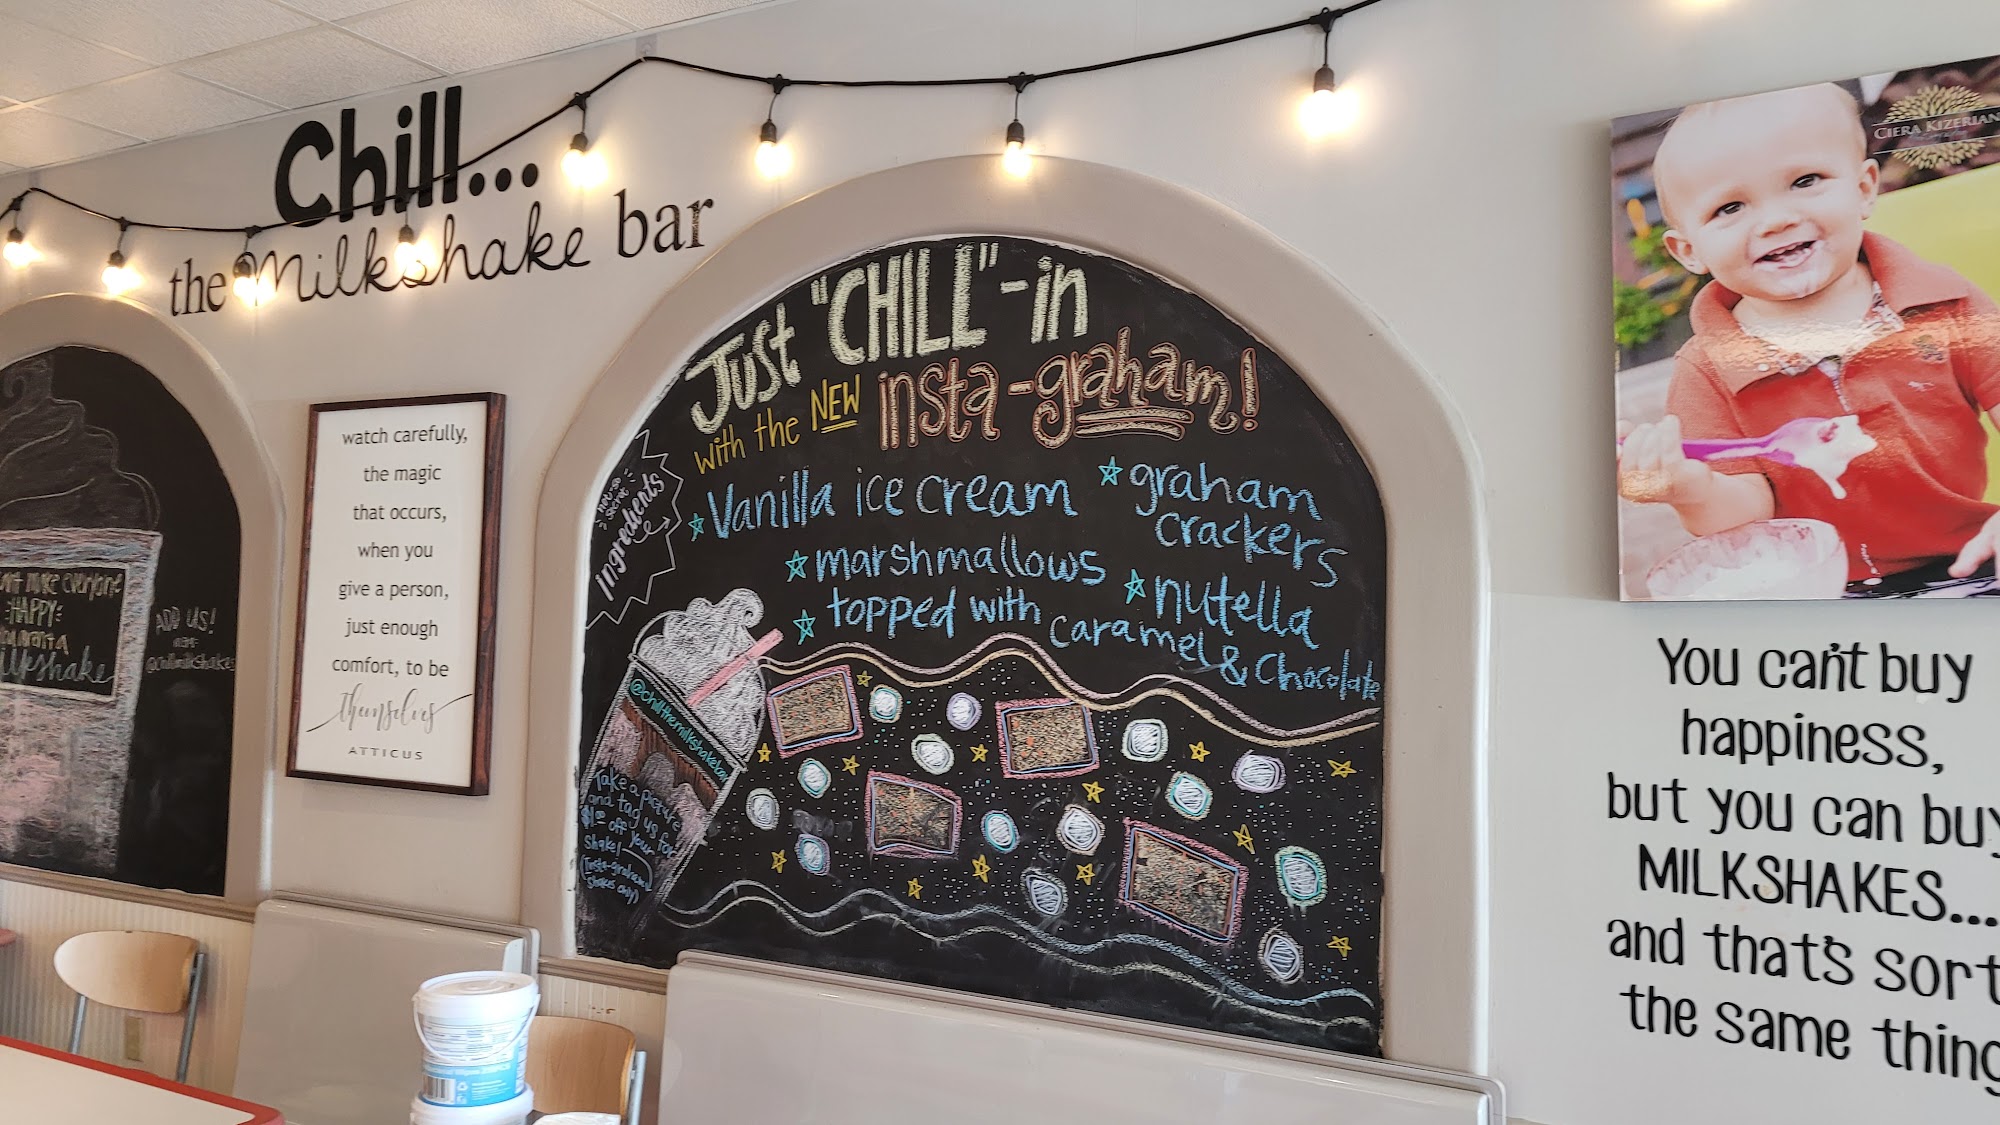 Chill...
the Milkshake bar
watch carefully,
the magic
that occurs,
when you
give a person,
just enough
comfort, to be
themselves
ATTICUS
make everyone
HAPPY
milkshake
ADD US!
Just "CHILL"-in
with the NEW insta-graham!
Ingredients
Vanilla ice cream
graham
crackers
marshmallows
nutella
topped with
caramel & chocolate
@chillthemilkshakebar
Take a picture
and tag us for
$1.00 off your
shake!
(Insta-graham
shakes only)
CIERA KIZERIAN
You can't buy
happiness,
but you can buy
MILKSHAKES....
and that's sort
the same thing